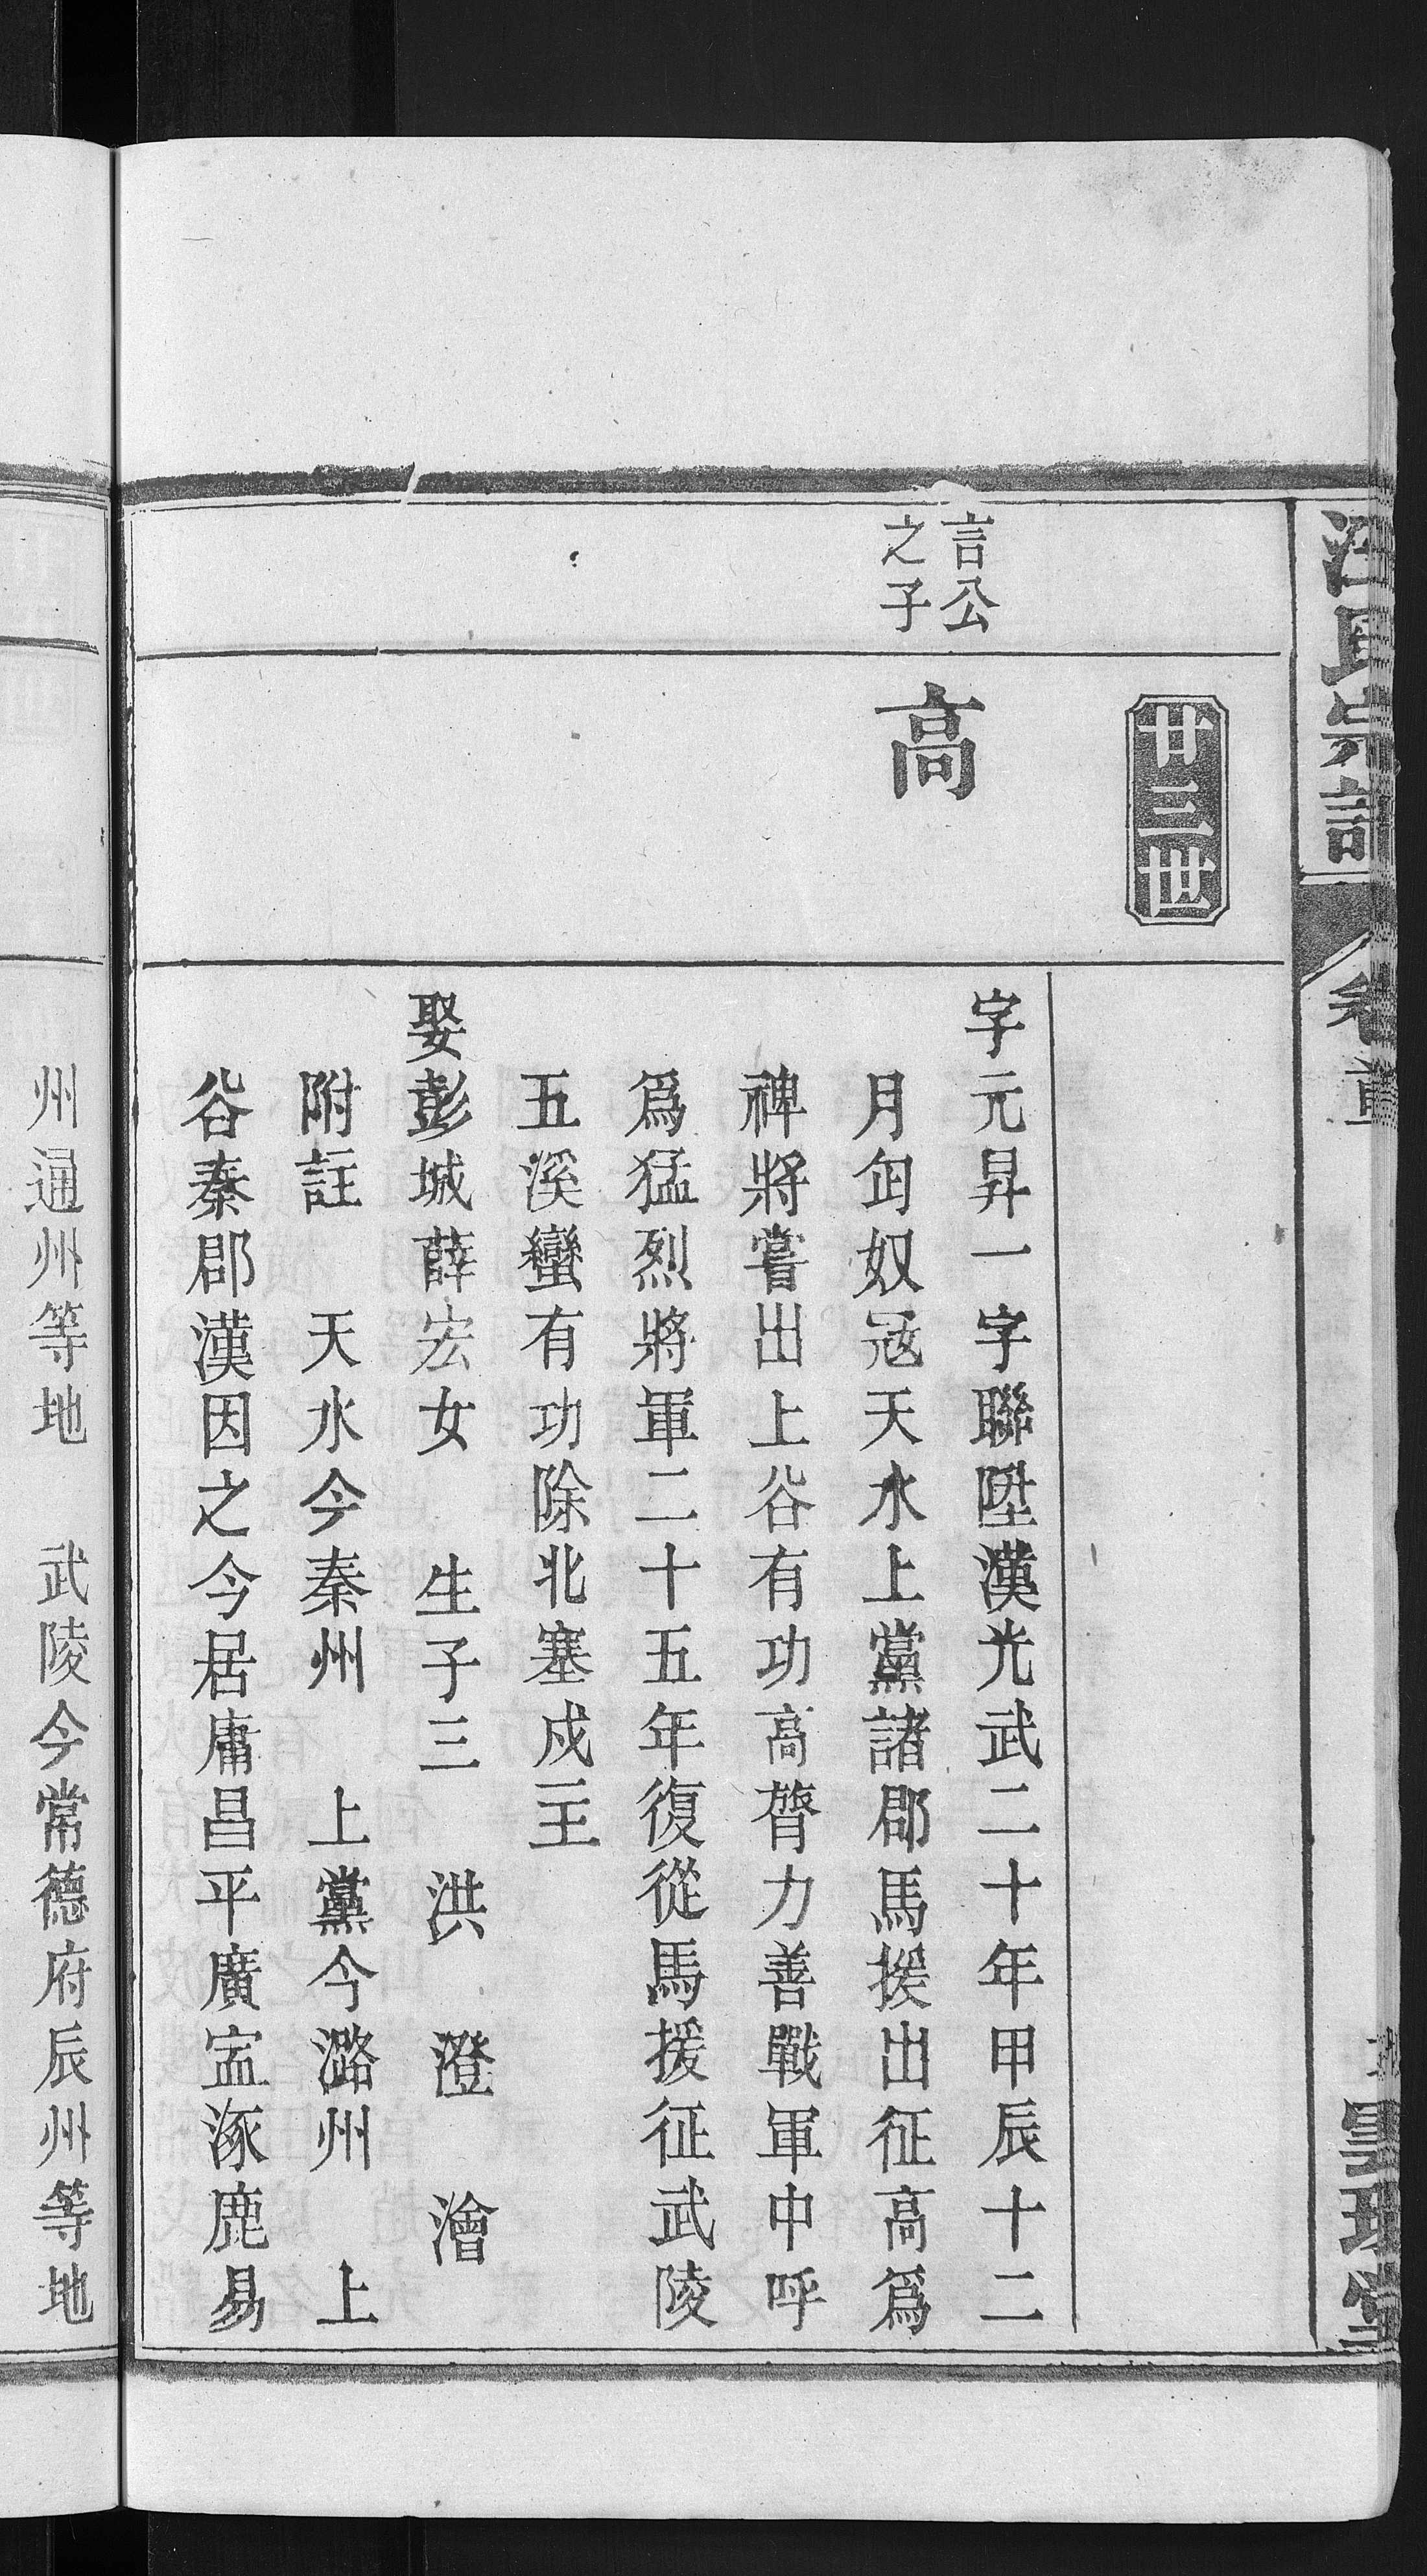 汪氏宗譜
卷首
廿三世
言公
之子
高
字元昇一字聯陞漢光武二十年甲辰十二
月匈奴冦天水上黨諸郡馬援出征高爲
裨將嘗出上谷有功高膂力善戰軍中呼
爲猛烈將軍二十五年復從馬援征武陵
五溪蠻有功除北塞戍主
娶彭城薛宏女 生子三 洪 澄 澮
附註 天水今秦州 上黨今潞州 上
谷秦郡漢因之今居庸昌平廣寍涿鹿易
州通州等地 武陵今常德府辰州等地